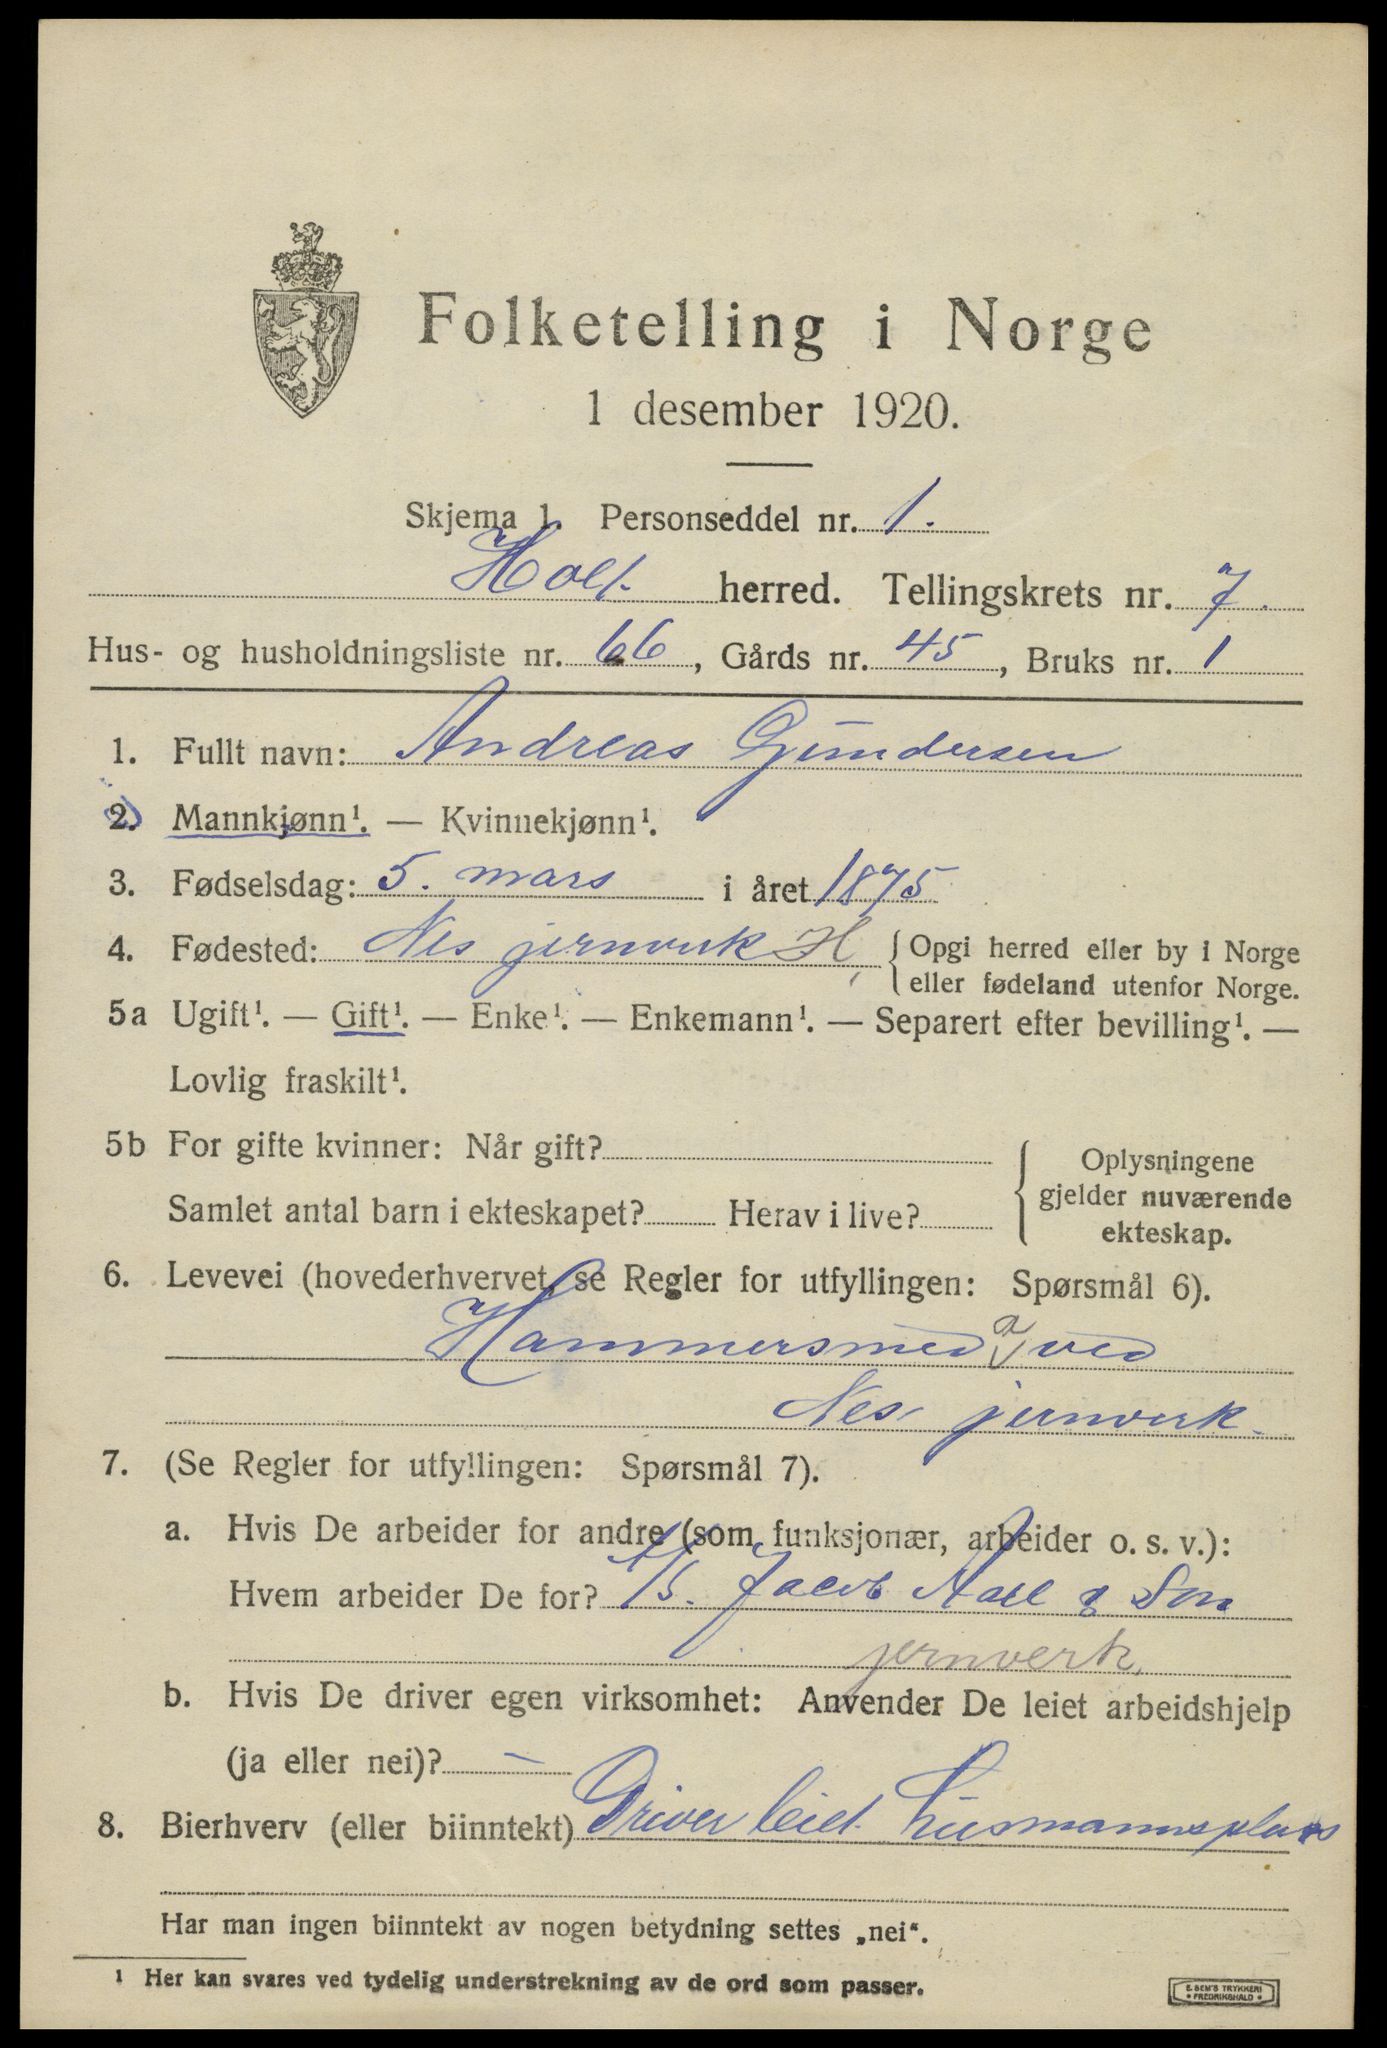 Folketelling i Norge
1 desember 1920.
Skjema 1. Personseddel nr. 1.
Holt herred. Tellingskrets nr. 7.
Hus- og husholdningsliste nr. 66, Gårds nr. 45, Bruks nr. 1
1. Fullt navn: Andreas Gundersen
2. Mannkjønn¹. — Kvinnekjønn¹.
3. Fødselsdag: 5. mars i året 1875
4. Fødested: Nes jernverk H, { Opgi herred eller by i Norge
eller fødeland utenfor Norge.
5a Ugift¹. — Gift¹. — Enke¹. — Enkemann¹. — Separert efter bevilling¹. —
Lovlig fraskilt¹.
5b For gifte kvinner: Når gift?
Samlet antal barn i ekteskapet? Herav i live?
Oplysningene
gjelder nuværende
ekteskap.
6. Levevei (hovederhvervet, se Regler for utfyllingen: Spørsmål 6).
Hammersmed a ved
Nes jernverk.
7. (Se Regler for utfyllingen: Spørsmål 7).
a. Hvis De arbeider for andre (som funksjonær, arbeider o. s. v.):
Hvem arbeider De for? A/S. Jacob Aall & Søn
jernverk,
b. Hvis De driver egen virksomhet: Anvender De leiet arbeidshjelp
(ja eller nei)? —
8. Bierhverv (eller biinntekt) Driver leiet husmannsplass
Har man ingen biinntekt av nogen betydning settes „nei“.
1 Her kan svares ved tydelig understrekning av de ord som passer.
E. SEM'S TRYKKERI
• FREDRIKSHALD •